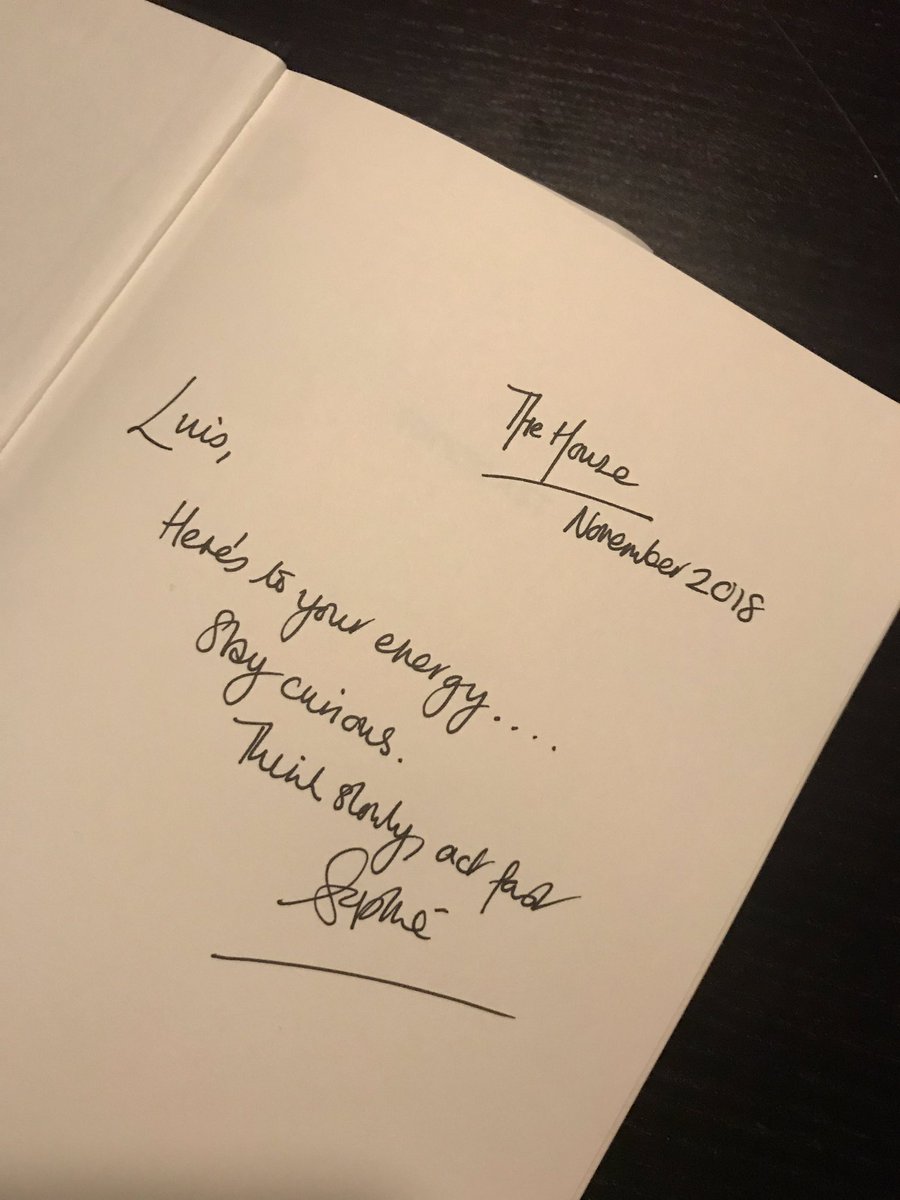 The House
November 2018
Luis,
Here's to your energy....
Stay curious.
Think slowly, act fast